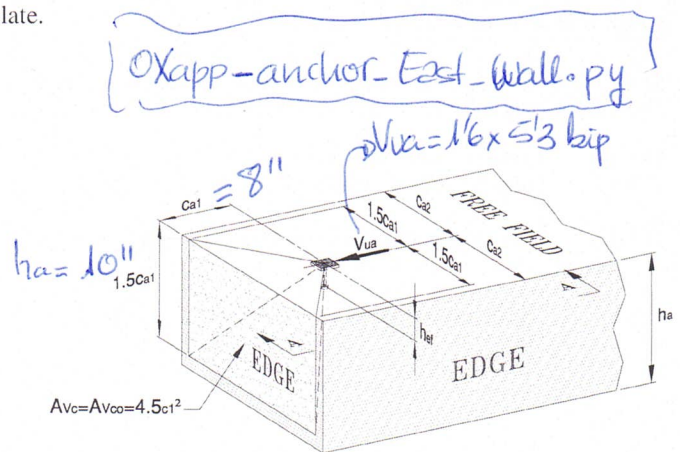 late.
OXapp-anchor_East_Wall.py
Vua=1'6x5'3 kip
ca1
= 8"
ha= 10"
1.5ca1
1.5ca1
ca2
FREE FIELD
Vua
1.5ca1
ca2
A
hef
ha
A
EDGE
EDGE
Avc=Avco=4.5c1²